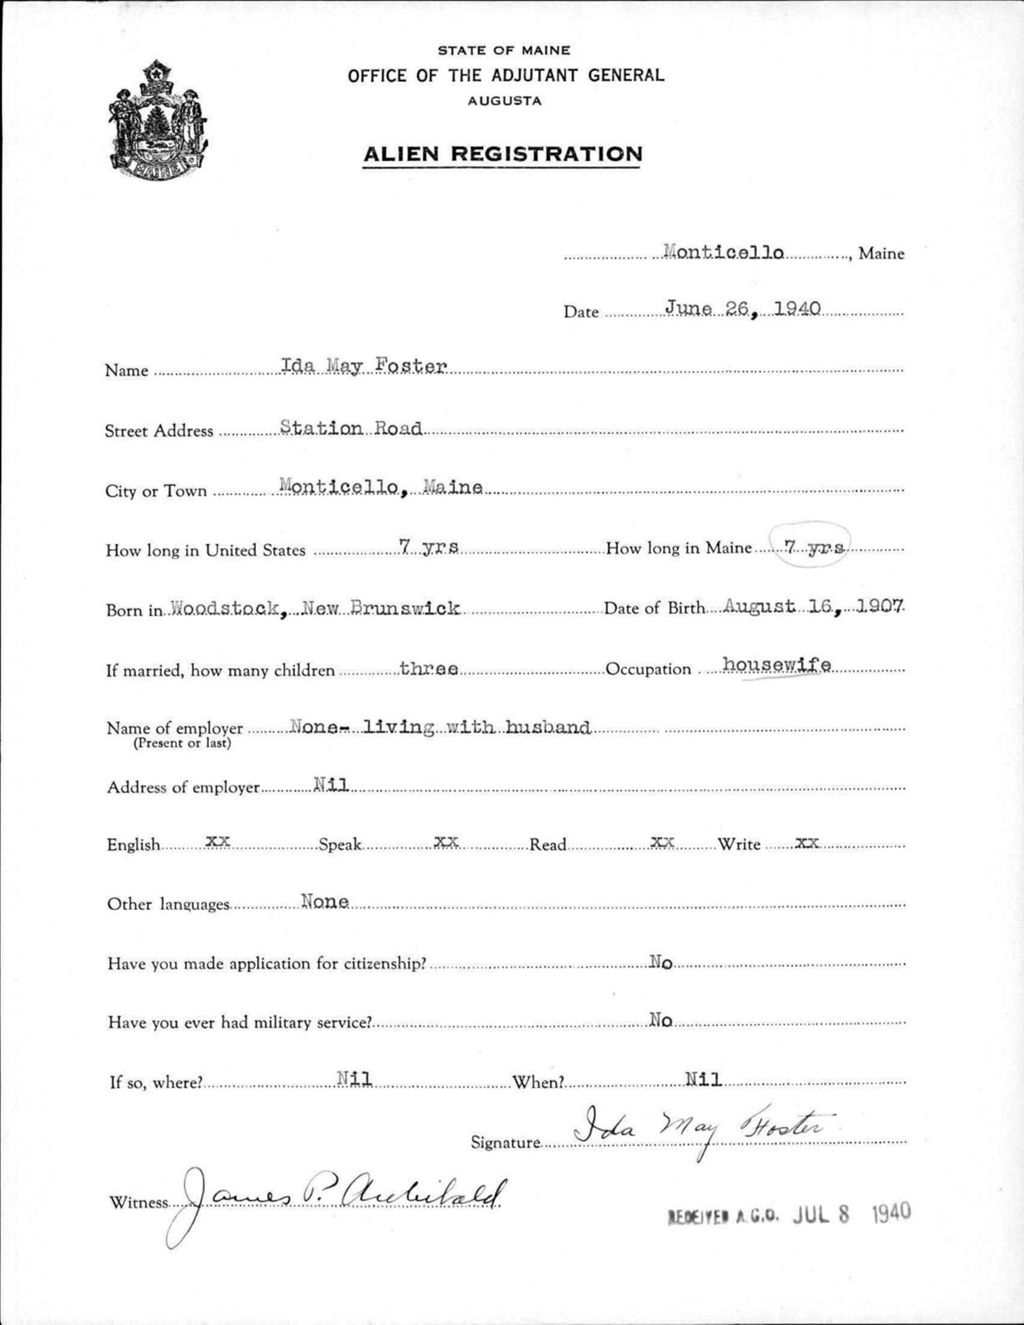 STATE OF MAINE
OFFICE OF THE ADJUTANT GENERAL
AUGUSTA
ALIEN REGISTRATION
MAINE
Monticello, Maine
Date June 26, 1940
Name Ida May Foster
Street Address Station Road
City or Town Monticello, Maine
How long in United States 7 yrs How long in Maine 7 yrs
Born in Woodstock, New Brunswick Date of Birth August 16, 1907
If married, how many children three Occupation housewife
Name of employer None- living with husband
(Present or last)
Address of employer Nil
English xx Speak xx Read xx Write xx
Other languages None
Have you made application for citizenship? No
Have you ever had military service? No
If so, where? Nil When? Nil
Signature Ida May Foster
Witness James P. Archibald
RECEIVED A.G.O. JUL 8 1940